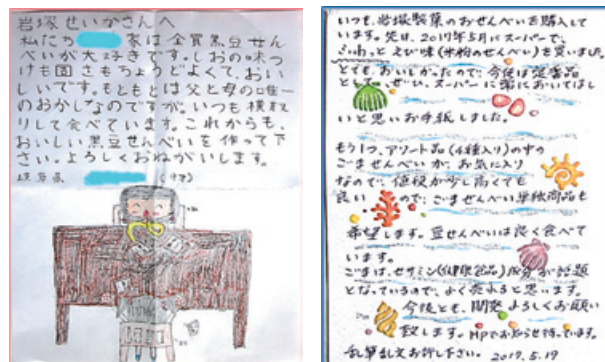 岩塚せいかさんへ
私たち 家は全員黒豆せん
べいが大好きです。しおの味つ
けも固さもちょうどよくて、おい
しいです。もともとは父と母の唯一
のおかしなのですが、いつも横取
りして食べています。これからも、
おいしい黒豆せんべいを作って下
さい。よろしくおねがいします。
いつも、岩塚製菓のおせんべいを購入して
います。先日、2017年5月にスーパーで、
ふわっと えび味(米粉のせんべい)を買いました。
とても、おいしかったので、今後は定番品
として、ぜひ、スーパーに常においてほし
いと思いお手紙しました。
もう1つ、アソート品(4種入り)の中の
ごませんべいが、お気に入り
なので、値段が少し高くても
良いので、ごませんべい単独商品も
希望します。豆せんべいは良く食べて
います。
ごまは、セサミン(健康食品)成分が話題
となっているので、よく売れると思います。
今後とも、開発よろしくお願い
致します。HPでお知らせ待っています。
乱筆乱文お許し下さい。 2017.5.19